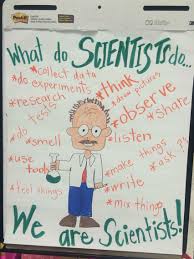 Post-it
What do SCIENTISTS do...
*collect data
*do experiments
*think
*research
*draw pictures
*observe
*test!
*share
*do
*smell
*listen
*use tools
*make things
*ask ?'s
*feel things
*write
*mix things
We are Scientists!